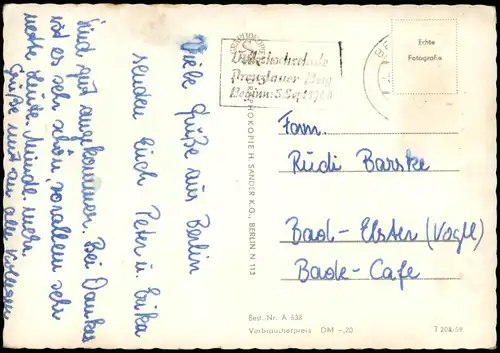 Viele Grüße aus Berlin
senden Euch Peter u. Erika
Sind gut angekommen. Bei Dankes
ist es sehr schön, vor allem sehr
nette Leute. Münde. mehr.
Grüße mit an alle Kollegen
Volkshochschule
Prenzlauer Berg
Beginn: 5. Sept 1960
Echte
Fotografie
Fam.
Rudi Barske
Bad-Elster (Vogtl)
Bade-Cafe
GRAPHOKOPIE H. SANDER K.G., BERLIN N 113
Best.-Nr. A 538
Verbraucherpreis DM -,20
T 208-59